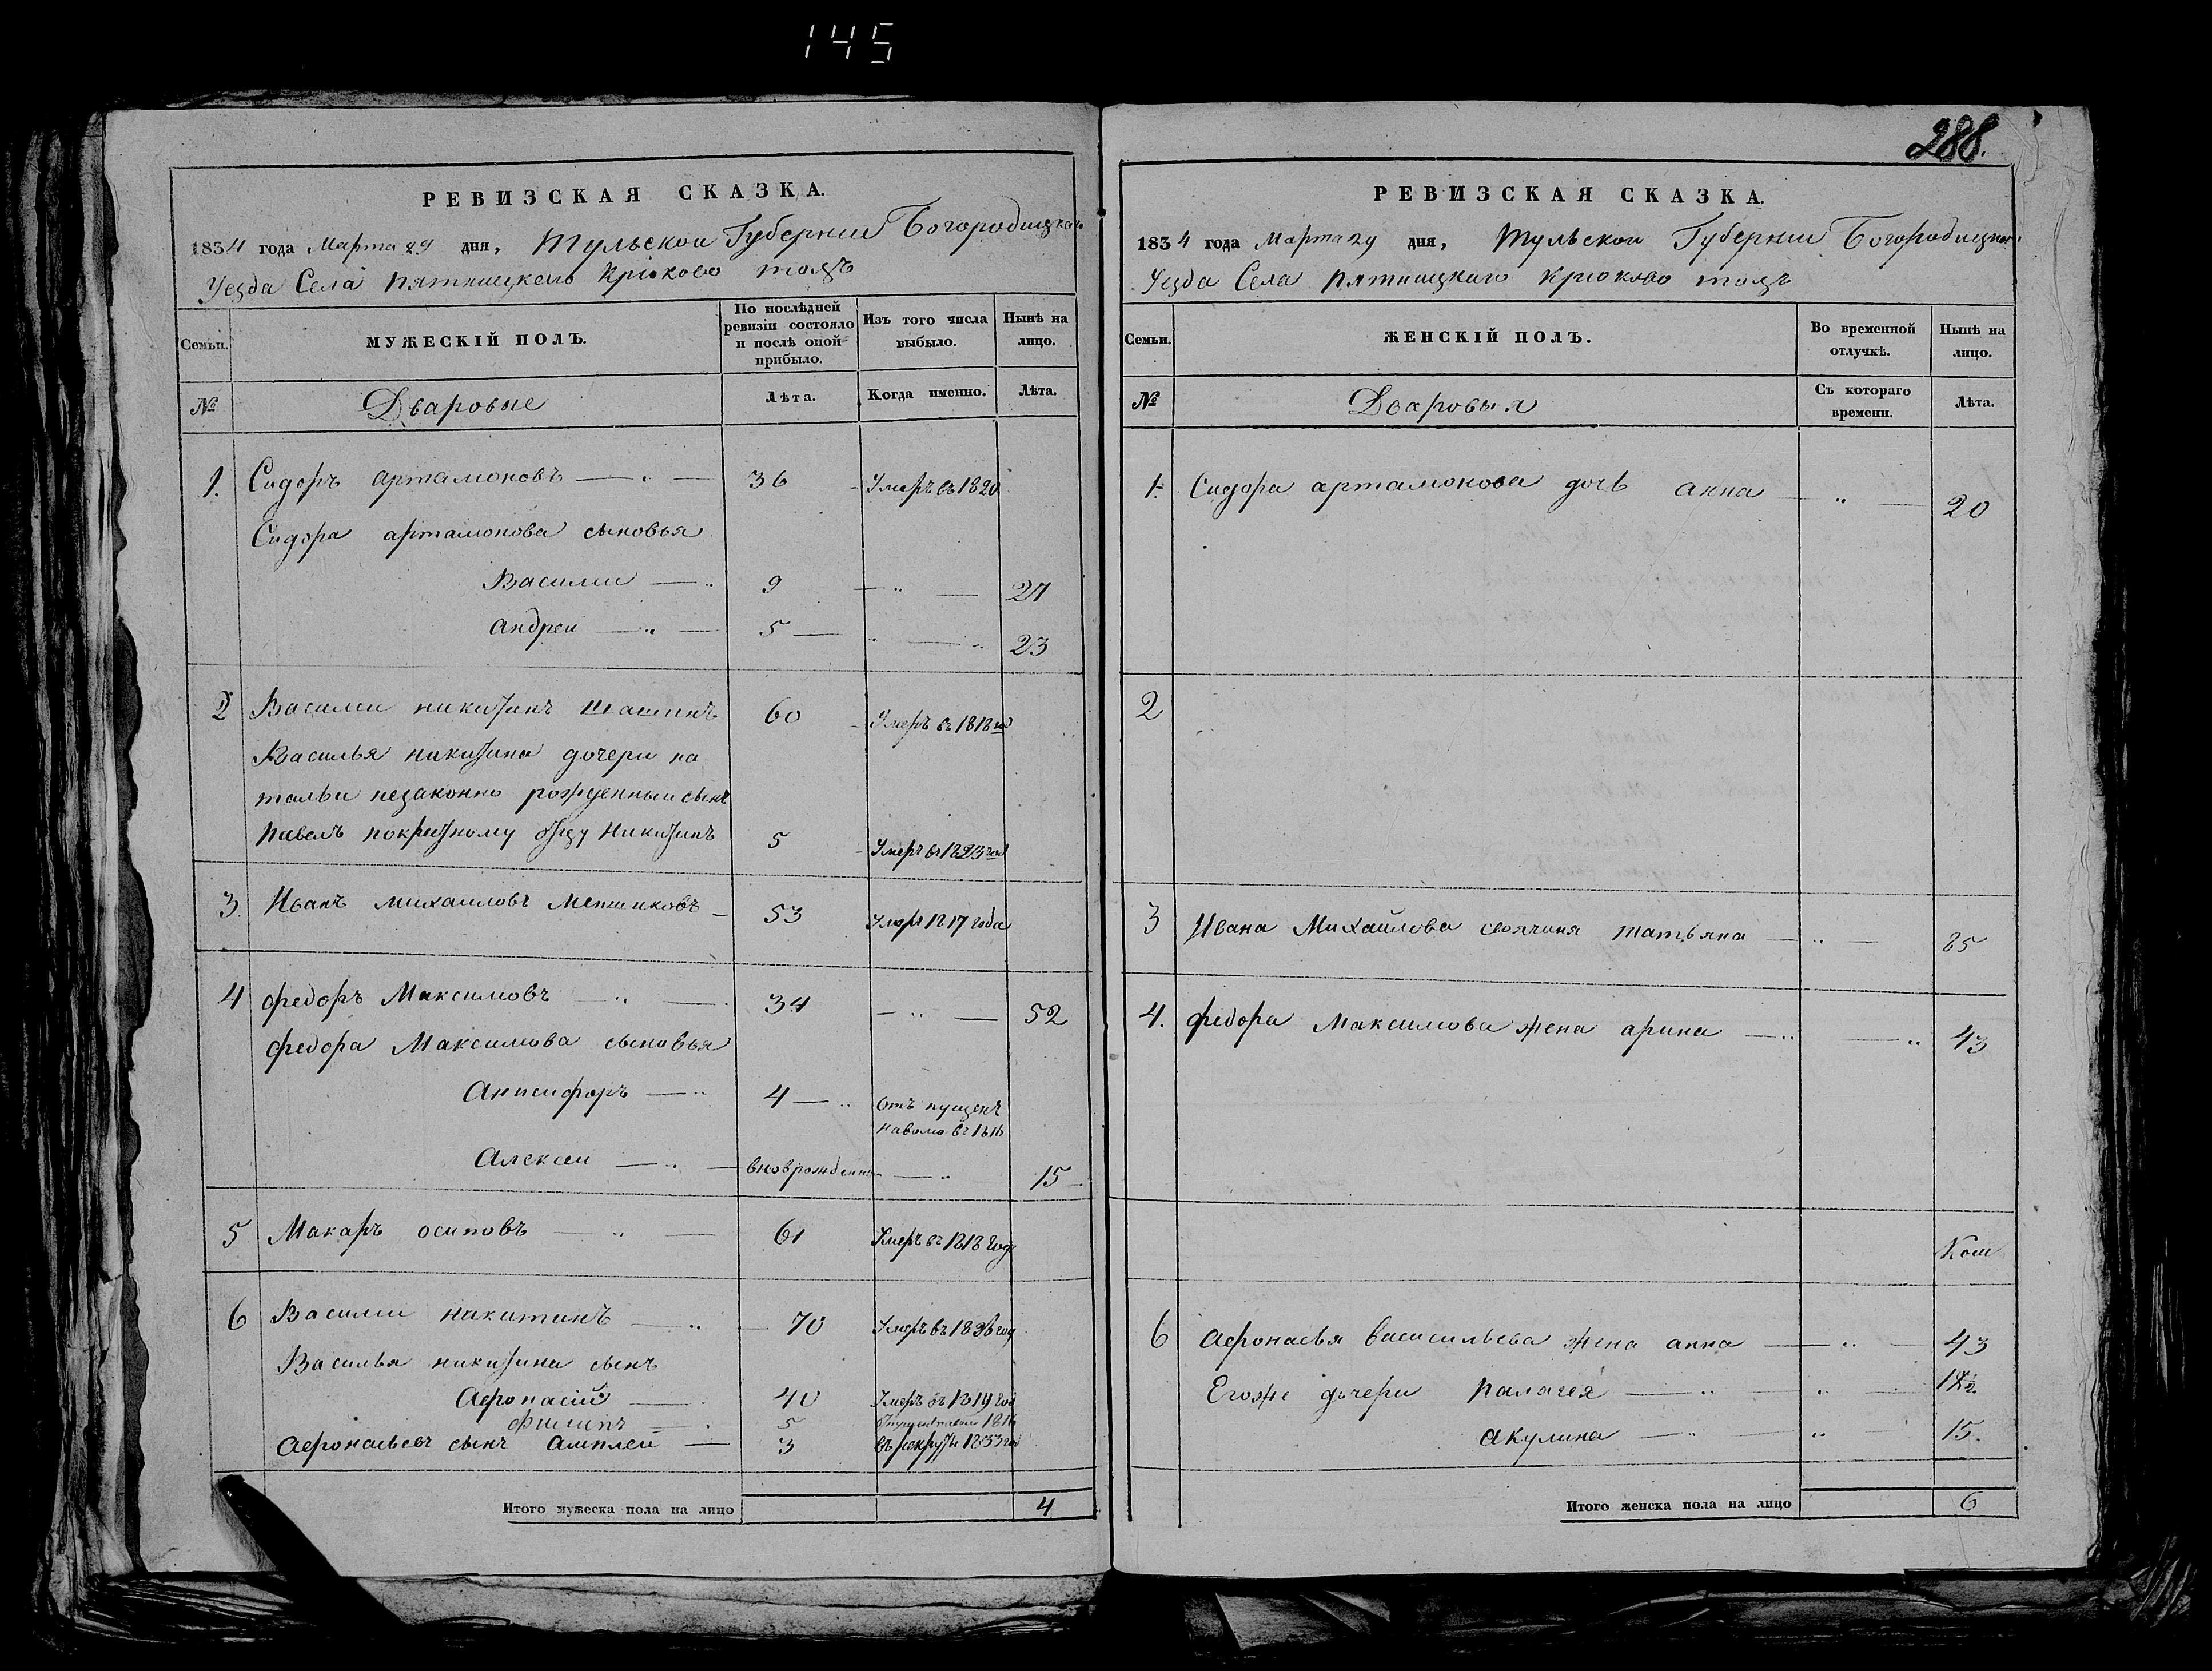 145
288.
РЕВИЗСКАЯ СКАЗКА.
1834 года Марта 29 дня, Тульской Губернии Богородицкаго
Уезда Села Пятницкаго Крюково тожъ
Семьи.
МУЖЕСКІЙ ПОЛЪ.
По послѣдней ревизіи состояло и послѣ оной прибыло.
Изъ того числа выбыло.
Нынѣ на лицо.
№ Дваровые Лѣта. Когда именно. Лѣта.
1. Сидоръ артамоновъ — 36 Умеръ въ 1820
Сидора артамонова сыновья
Василии — 9 — 27
андреи — 5 — 23
2 Василии никитинъ 60 Умеръ въ 1818
Василья никитина дочери на
тальи незаконно рожденныи сынъ
павелъ покрестному отцу никитинъ 5 Умеръ въ 1823
3. Иванъ михаиловъ Меншиковъ — 53 1817 года
4 федоръ Максимовъ — 34 — 52
федора Максимова сыновья
Анисифоръ — 4 — отъ пущенъ
наволю въ 1816
Алексеи — вновьрожденны — 15
5 Макаръ осиповъ — 61 Умеръ въ 1818 годе
6 Василии никитинъ — 70 Умеръ въ год
Василья никитина сынъ
Афонасіи — 40 Умеръ въ 1819 год
Филипъ — 5 1816
Афонасьевъ сынъ Амплеи — 3 въ рекруты 1833
Итого мужеска пола на лицо 4
РЕВИЗСКАЯ СКАЗКА.
1834 года Марта 29 дня, Тульскои Губернии Богородицкаго
Уезда Села Пятницкаго Крюково тожъ
Семьи.
ЖЕНСКІЙ ПОЛЪ.
Во временной отлучкѣ.
Нынѣ на лицо.
№ Дваровыя Съ котораго времени. Лѣта.
1. Сидора артамонова дочь анна — 20
2
3 Ивана Михаилова своячиня татьяна — 85
4. федора Максимова жена арина — 43
6 Афонасья васильева жена анна — 43
Егоже дочери палагея —
акулина — 15.
Итого женска пола на лицо 6